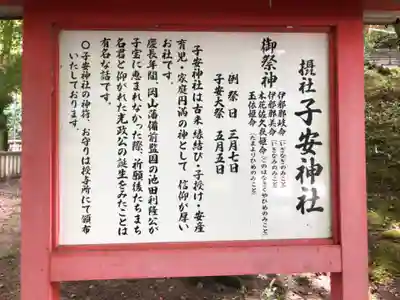 摂社 子安神社
御祭神
伊邪那岐命(いざなぎのみこと)
伊邪那美命(いざなみのみこと)
木花佐久夜姫命(このはなさくやひめのみこと)
玉依姫命(たまよりひめのみこと)
例祭日 三月七日
子安大祭 五月五日
子安神社は古来 縁結び・子授け・安産
育児・家庭円満の神として 信仰が厚い
お社です。
慶長年間、岡山藩備前監国の池田利隆公が
子宝に恵まれなかった際、祈願後たちまち
名君と仰がれた光政公の誕生をみたことは
有名な話です。
〇子安神社の神符、お守りは授与所にて頒布
いたしております。